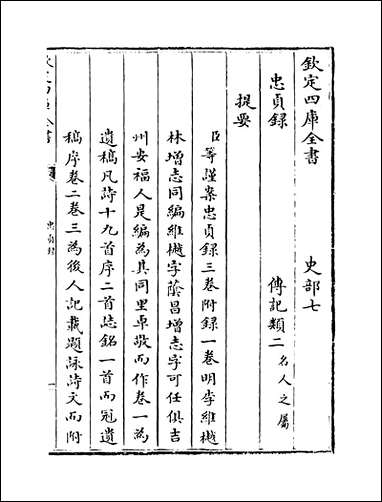 欽定四庫全書　史部七
忠貞録　傳記類二　名人之屬
提要
臣等謹案忠貞録三卷附録一卷明李維樾
林增志同編維樾字蔭昌增志字可任俱吉
州安福人是編為其同里卓敬而作卷一為
遺稿凡詩十九首序二首誌銘一首而冠遺
稿序卷二卷三為後人記載題詠詩文而附
忠貞録